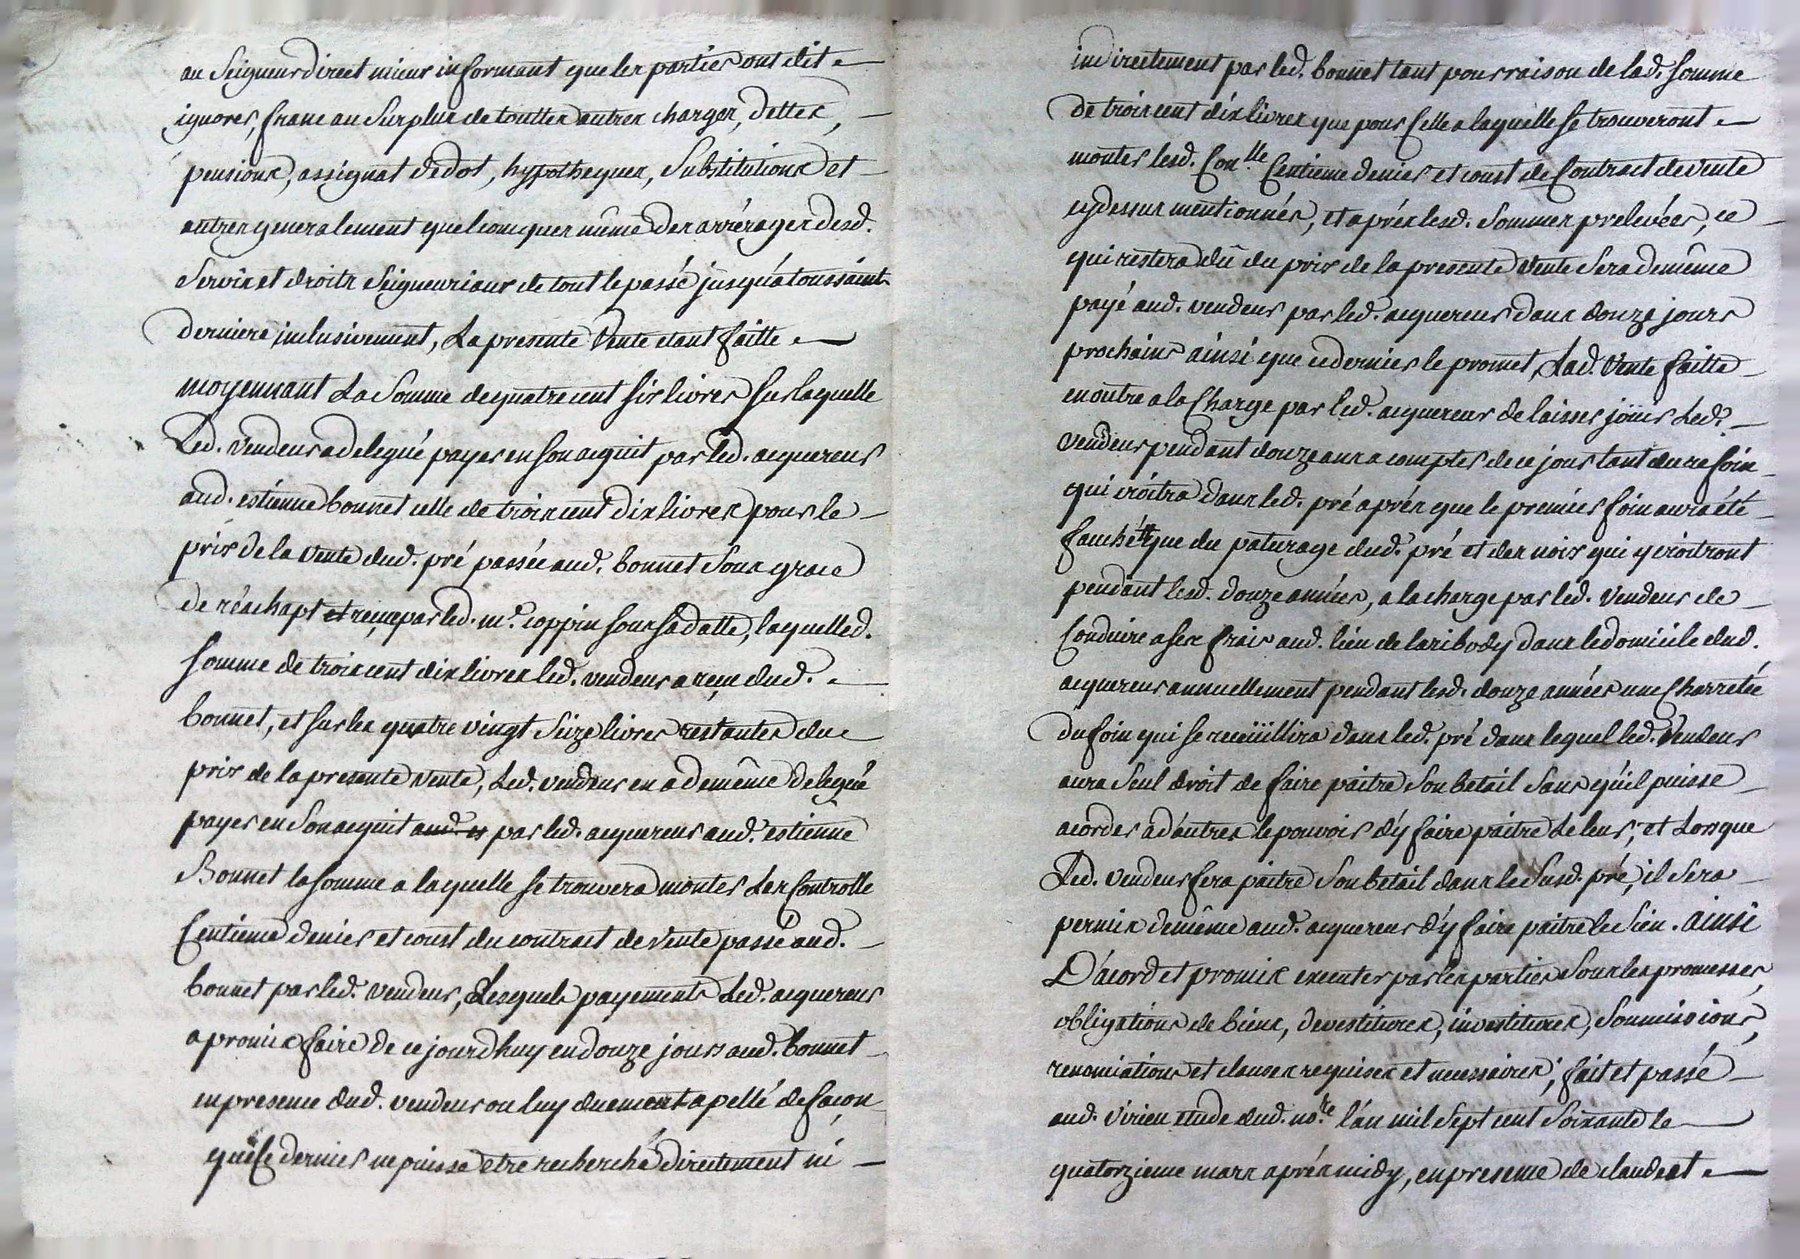 au Seigneur direct mieux informant que les parties ont dit
ignorer, franc au Surplus de touttes autres charges, dettes,
pensions, assignat de dot, hypotheques, Substitutions et
autres generalement quelconques même des arrérages desd.
Servis et droits Seigneuriaux de tout le passé jusqu'a toussaint
derniere inclusivement, La presente Vente etant faitte
moyennant La Somme de quatre cent six livres sur laquelle
Led. vendeur a delegué payer en son acquit par led. acquereur
aud. estienne bonnet celle de trois cent dix livres pour le
prix de la vente dud. pré passée aud. bonnet sous grace
de réachapt et reçue par led. m.e coppin sous sa datte, laquelle d.
somme de trois cent dix livres led. vendeur a reçu dud.
bonnet, et sur les quatre vingt Seize livres restantes du
prix de la presente vente, Led. vendeur en a de même delegué
payer en Son acquit aud. es par led. acquereur aud. estienne
Bonnet la somme a laquelle se trouvera monter Les Controlle
Centieme denier et coust du contract de vente passé aud.
bonnet par led. vendeur, Lesquels payements Led. acquereur
a promis faire de ce jourdhuy en douze jours aud. bonnet
en presence dud. vendeur ou luy duement apellé de façon
que ce dernier ne puisse etre recherché directement ni
indirectement par led. bonnet tant pour raison de lad. somme
de trois cent dix livres que pour Celle a laquelle se trouveront
monter lesd. Con.lle Centieme denier et coust de Contract de vente
cy dessus mentionnés, et après lesd. Sommes prelevées, ce
qui restera dû du prix de la presente Vente Sera de même
payé aud. vendeur par led. acquereur dans douze jours
prochains ainsi que ce dernier le promet, Lad. Vente faitte
en outre a la Charge par led. acquereur de laisser jöuir Led.
vendeur pendant douze ans a compter de ce jour tant du refoin
qui croitra dans led. pré après que le premier foin aura été
fauché que du paturage dud. pré et des noix qui y croitront
pendant lesd. douze années, a la charge par led. vendeur de
Conduire a ses frais aud. lieu de laribody dans le domicile dud.
acquereur annuellement pendant lesd. douze années une Charretée
du foin qui se recueüillira dans led. pré dans lequel led. Vendeur
aura Seul droit de faire paitre Son betail Sans qu'il puisse
acorder a d'autres le pouvoir d'y faire paitre Le leur, et Lorsque
Led. vendeur fera paitre Son betail dans le Susd. pré, il Sera
permis de même aud. acquereur d'y faire paitre le Sien. ainsi
D'acord et promis executer par les parties Sous les promesses,
obligations de biens, devestitures, investitures, Soumissions,
renonciations et clauses requises et necessaires, fait et passé
aud. Virieu etude dud. no.re l'an mil Sept cent Soixante le
quatorzieme mars après midy, en presence de claude et